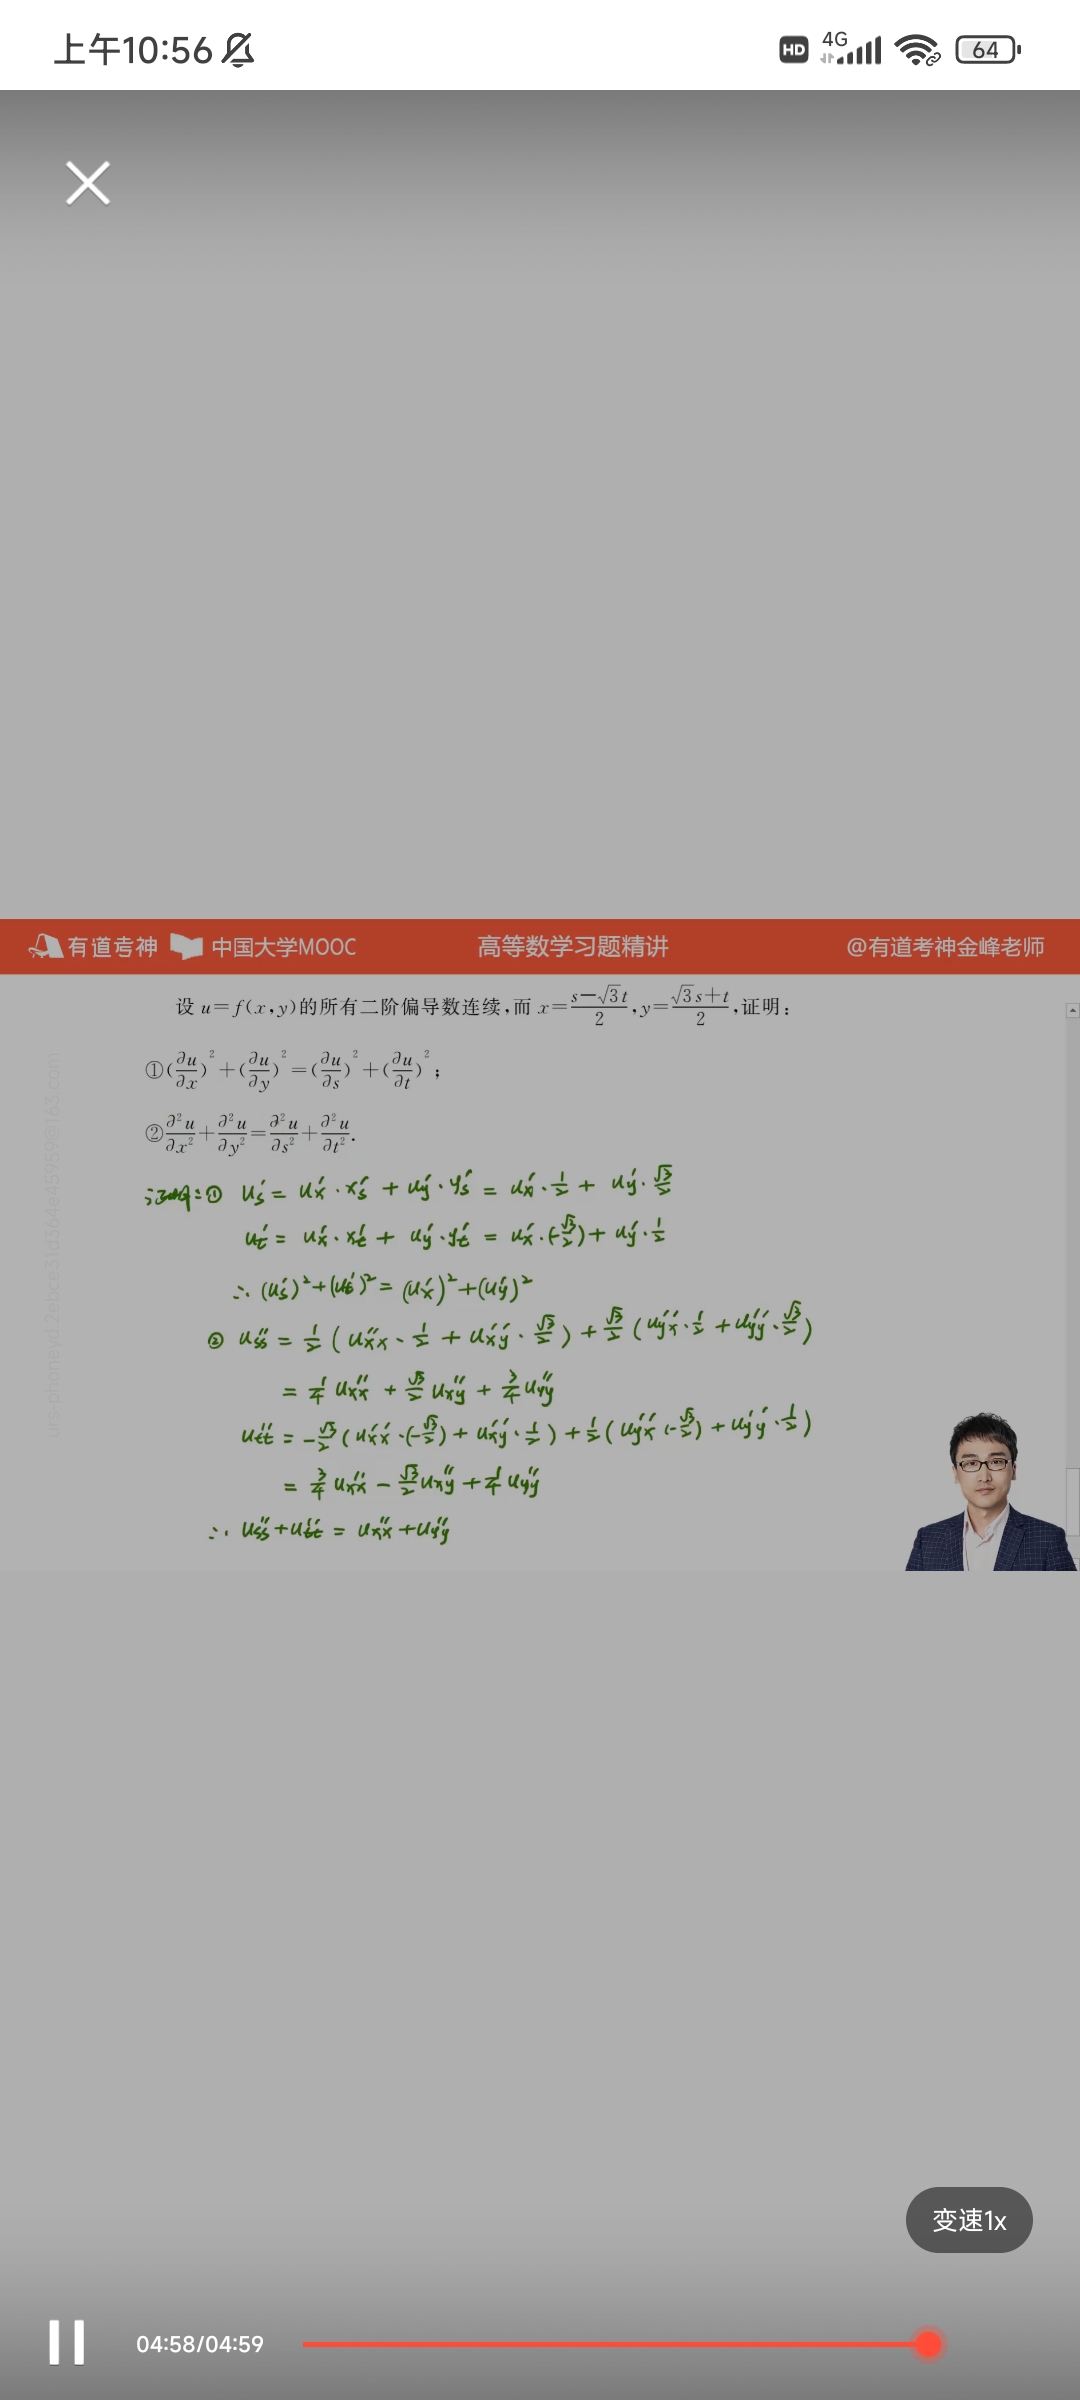 上午10:56
HD 4G 64
有道考神 中国大学MOOC 高等数学习题精讲 @有道考神金峰老师
设 u=f(x,y)的所有二阶偏导数连续,而 x=(s-√3t)/2,y=(√3s+t)/2,证明:
①(∂u/∂x)²+(∂u/∂y)²=(∂u/∂s)²+(∂u/∂t)²;
②∂²u/∂x²+∂²u/∂y²=∂²u/∂s²+∂²u/∂t².
证明:① u's = u'x · x's + u'y · y's = u'x · 1/2 + u'y · √3/2
u't = u'x · x't + u'y · y't = u'x · (-√3/2) + u'y · 1/2
∴ (u's)²+(u't)² = (u'x)²+(u'y)²
② u''ss = 1/2 (u''xx · 1/2 + u''xy · √3/2) + √3/2 (u''yx · 1/2 + u''yy · √3/2)
= 1/4 u''xx + √3/2 u''xy + 3/4 u''yy
u''tt = -√3/2 (u''xx · (-√3/2) + u''xy · 1/2) + 1/2 (u''yx (-√3/2) + u''yy · 1/2)
= 3/4 u''xx - √3/2 u''xy + 1/4 u''yy
∴ u''ss + u''tt = u''xx + u''yy
变速1x
04:58/04:59